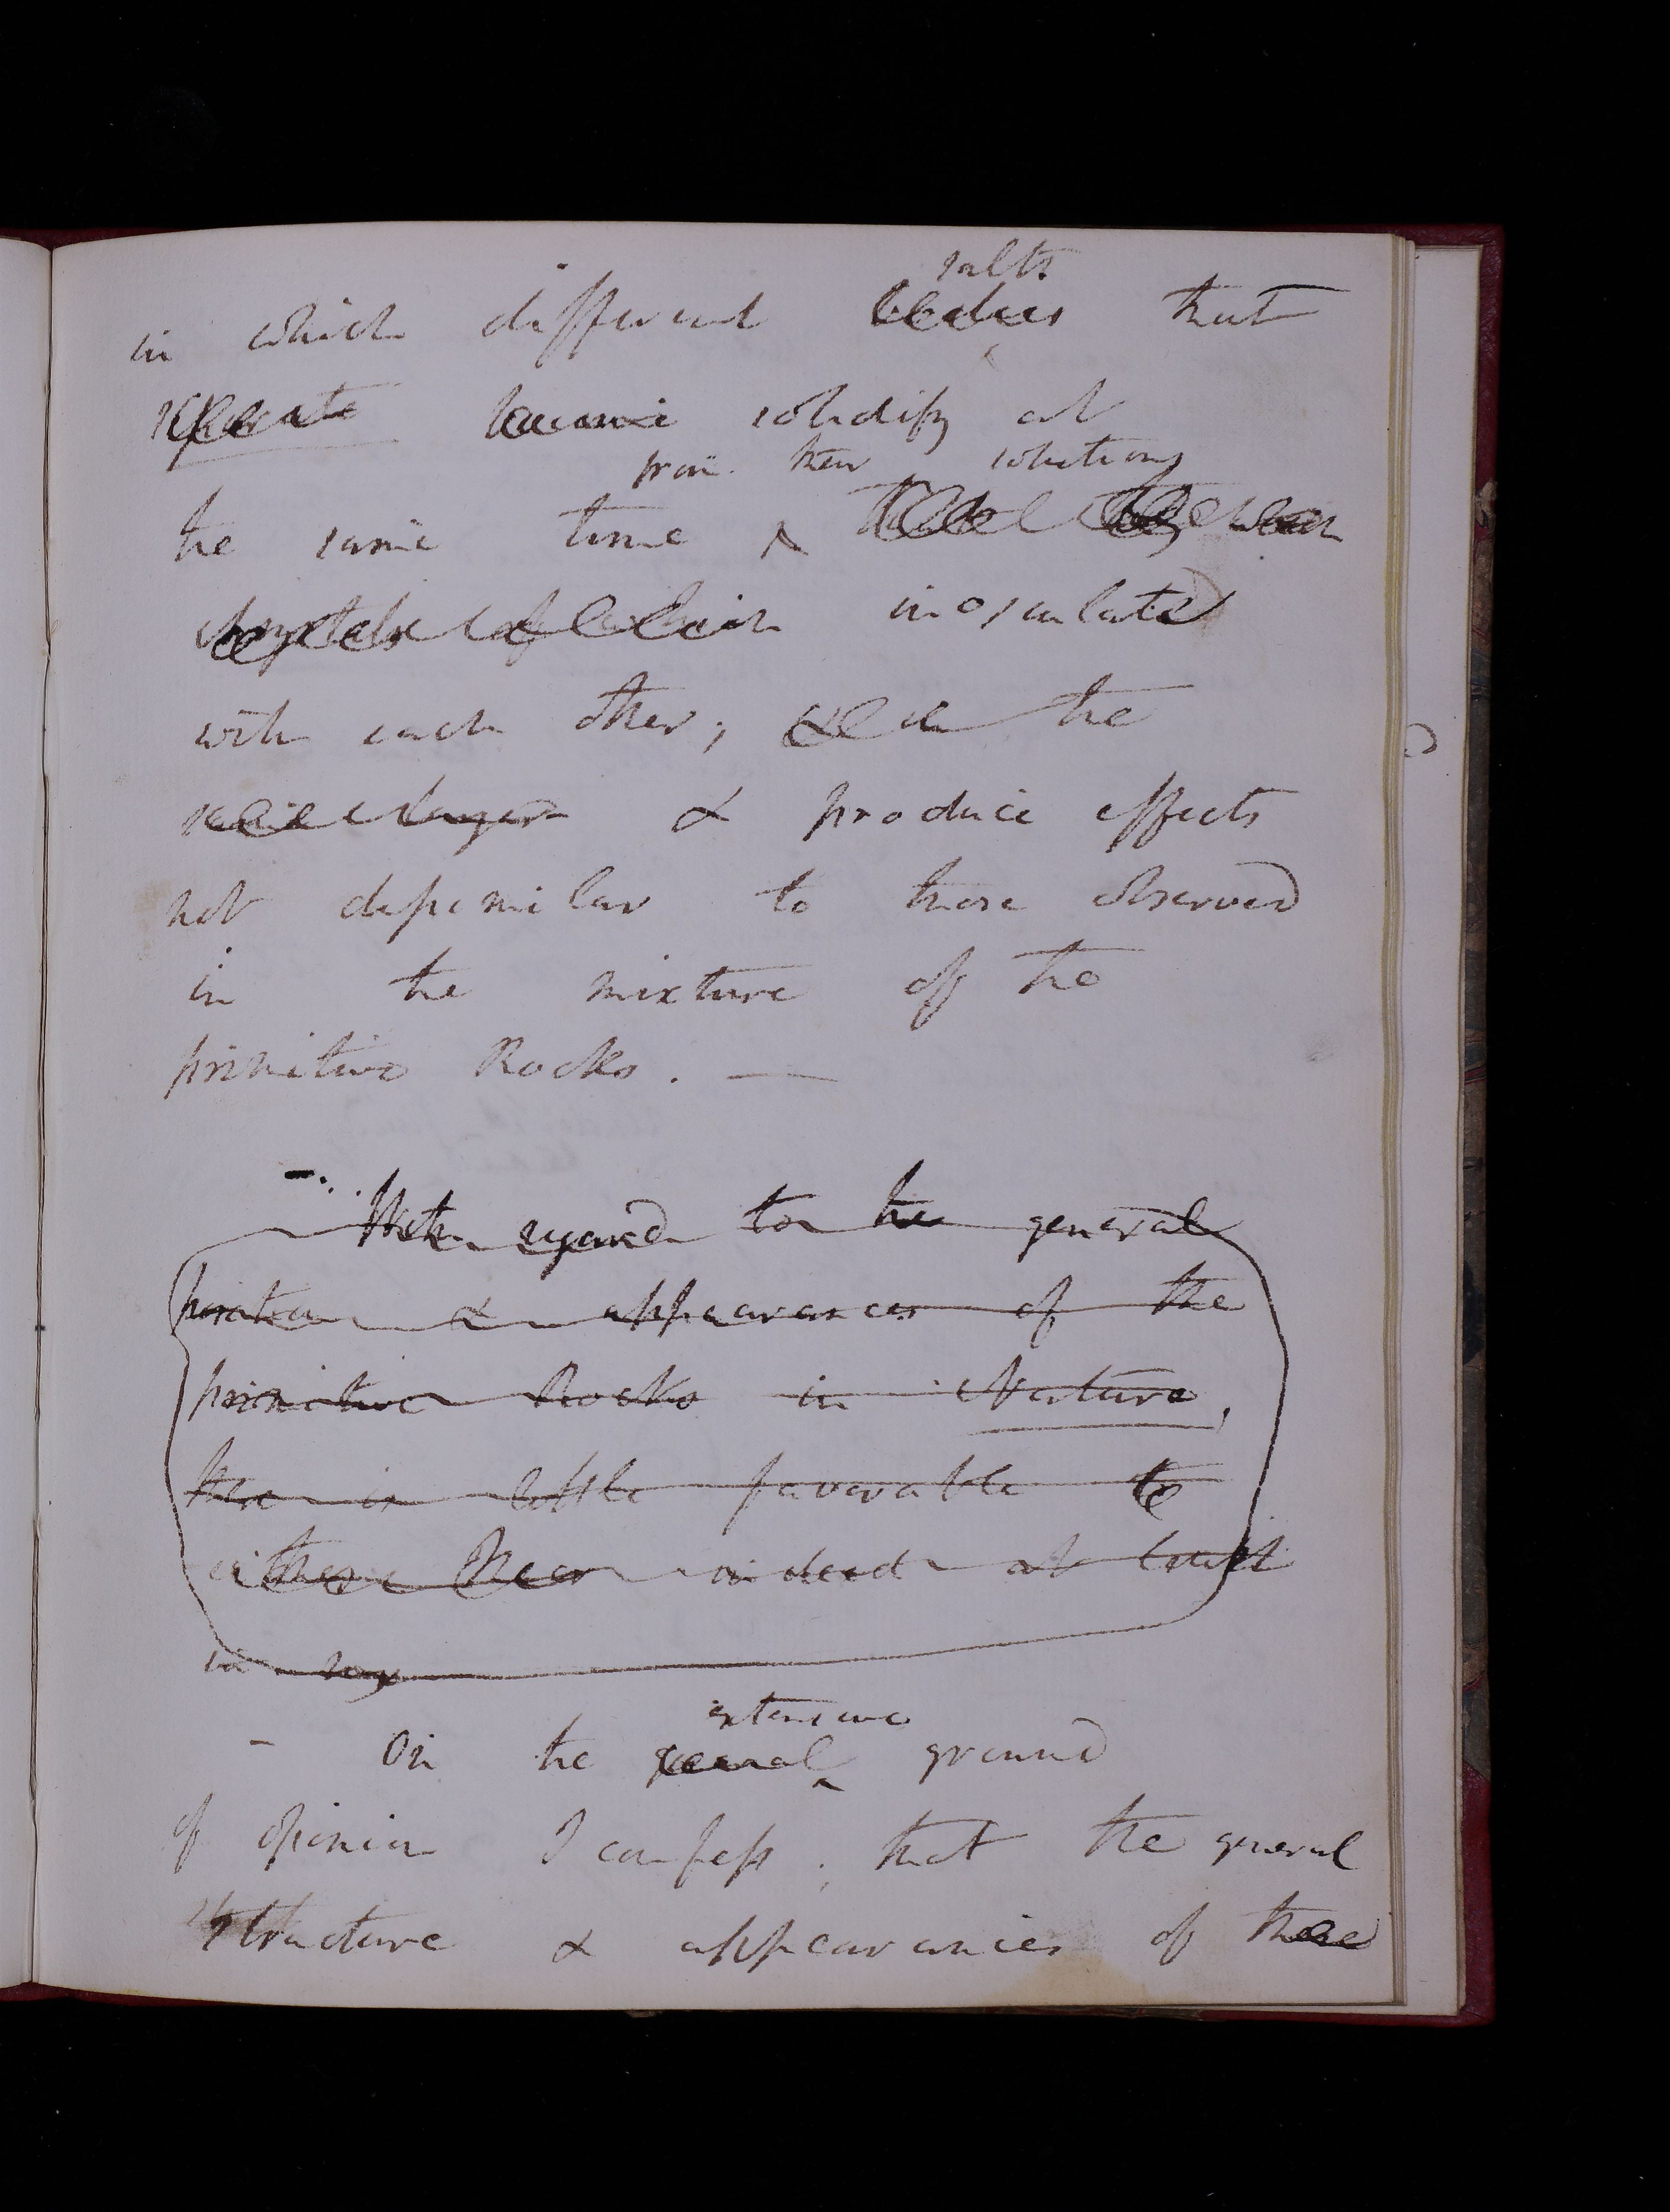 salts
in which different bodies that
separate become solidify at
from their solutions
the same time
crystals of which inosculate
with each other; & the
same layer & produce effects
not dissimilar to those observed
in the mixture of the
primitive Rocks. —
With regard to the general
position & appearances of the
primitive Rocks in Nature,
there is little favorable to
either indeed at least
in my
extensive
– On the general ground
of opinion I confess, that the general
structure & appearances of these